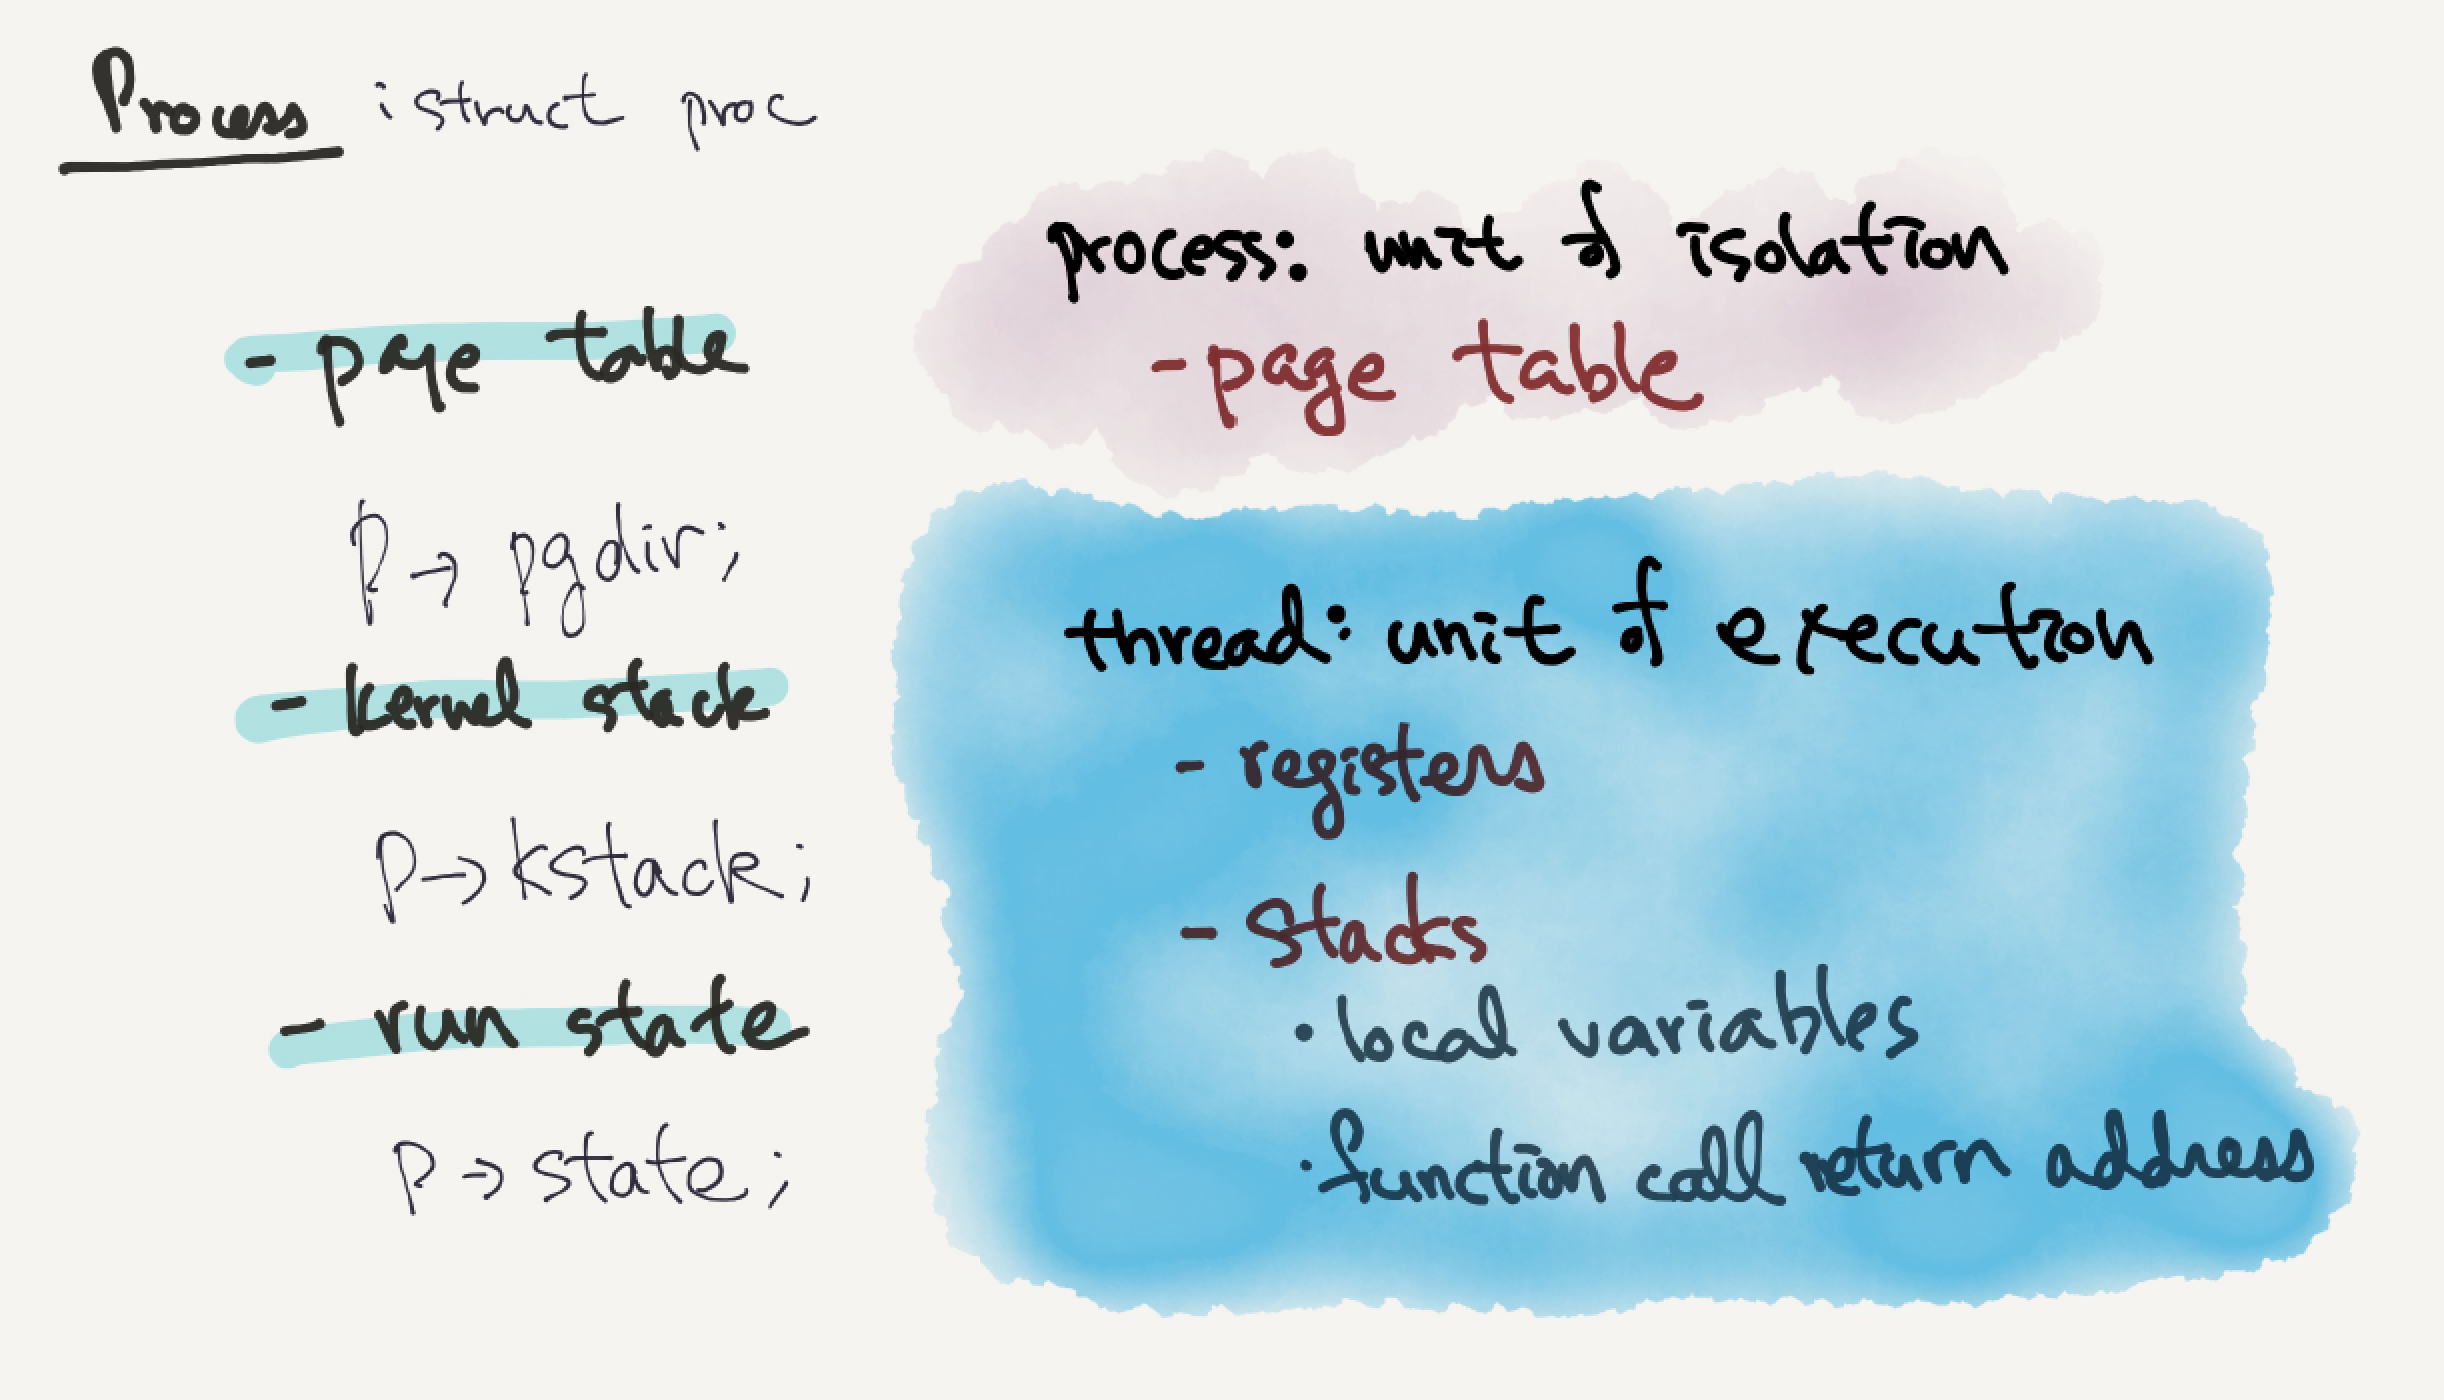 Process : struct proc
- page table
p → pgdir;
- kernel stack
p → kstack;
- run state
p → state;
process: unit of isolation
- page table
thread: unit of execution
- registers
- stacks
· local variables
· function call return address